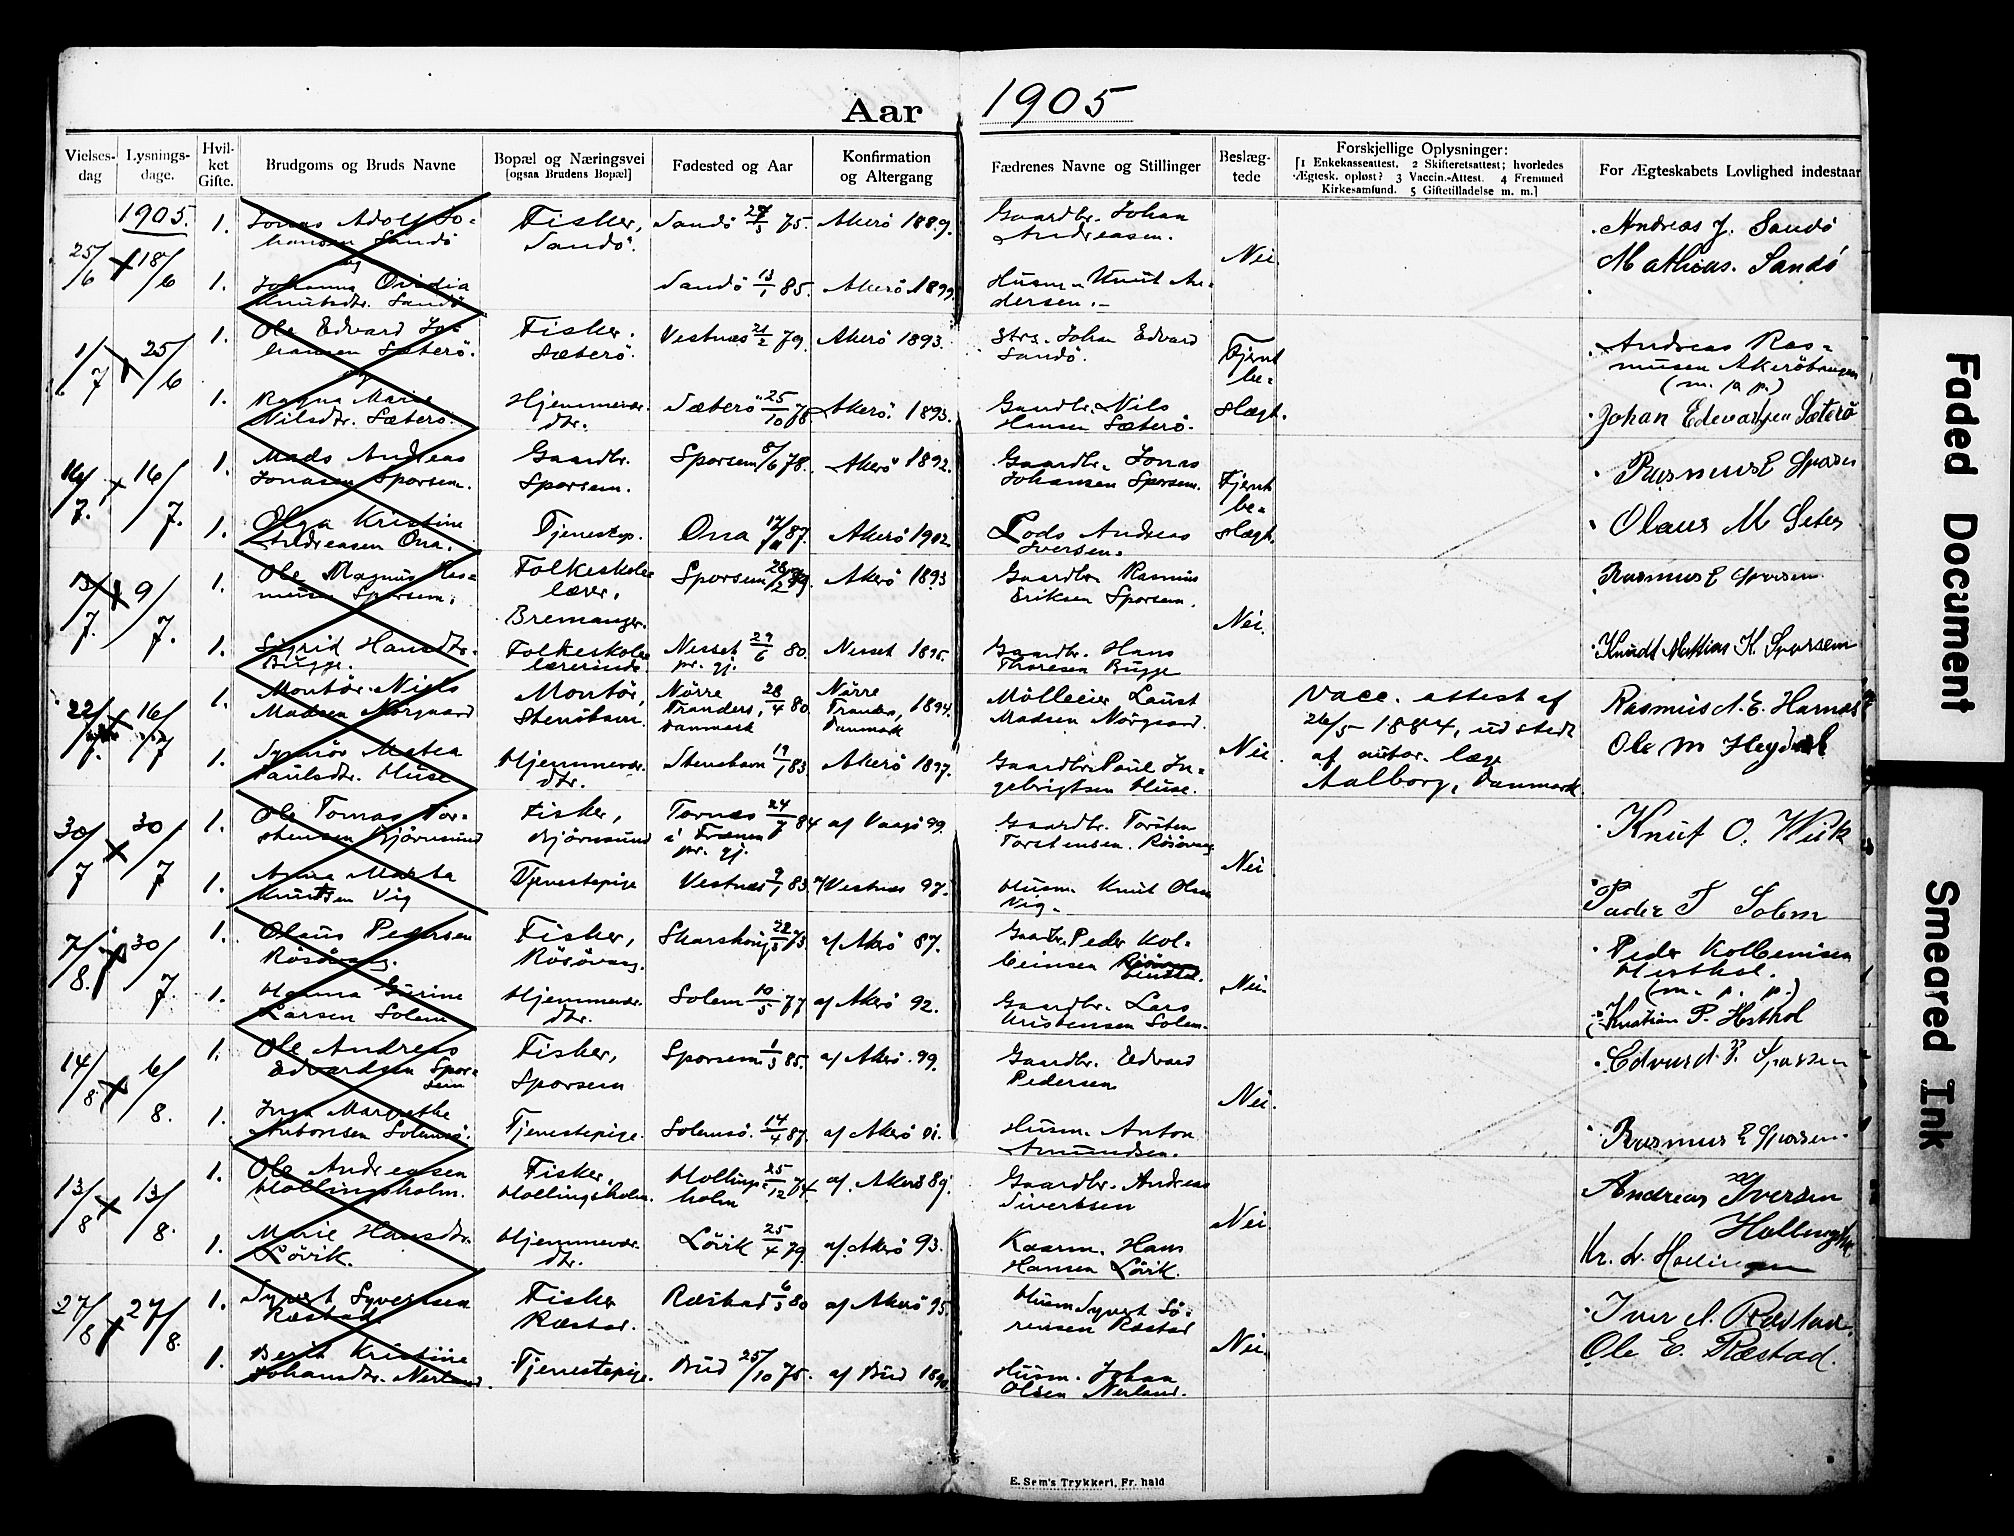 Aar 1905
Vielses-dag
Lysnings-dage.
Hvil-ket Gifte.
Brudgoms og Bruds Navne
Bopæl og Næringsvei [ogsaa Brudens Bopæl]
Fødested og Aar
Konfirmation og Altergang
Fædrenes Navne og Stillinger
Beslæg-tede
Forskjellige Oplysninger:
[1 Enkekasseattest. 2 Skifteretsattest; hvorledes
Ægtesk. opløst? 3 Vaccin.-Attest. 4 Fremmed
Kirkesamfund. 5 Giftetilladelse m. m.]
For Ægteskabets Lovlighed indestaar
1905.
25/6 18/6 1. Jonas Adolf Jo-
hansen Sandö
Fisker, Sandö.
Sandö 75. Akerö 1889.
Gaardbr. Johan
Andreasen.
Nei.
Andreas J. Sandö
Mathias. Sandö
og
1. Johanna
Knutsdtr. Sandö
Sandö 13/1 85. Akerö 1899.
Husm. Knut An-
dersen.
1/7 25/6 1. Ole Edvard Jo-
hansen Sæterö.
Fisker. Sæterö.
Vestnæs 21/2 79. Akerö 1893.
Johan Edvard
Sandö.
Fjernt be-slægt.
Andreas Ras-
musen
(m. p. p.)
og
1. Ragna Marie
Nilsdtr. Sæterö.
Hjemmevær. dtr.
Sæterö 25/10 78. Akerö. 1893.
Gaardbr. Nils
Hansen Sæterö.
Johan Edvardsen Sæterö
16/7. 1. Mads Andreas
Jonasen Sporsem.
Gaardbr. Sporsem.
Sporsem 8/6 78. Akerö 1892.
Gaardbr. Jonas
Johansen Sporsem.
Fjernt be-slægt.
Rasmus E Sporsem
1. Olga Kristine
Andreasen Ona.
Tjenestep.
Ona 87. Akerö 1902.
Lods Andreas
Iversen.
Olaus M Seter
13/7. 9/7. 1. Ole Magnus Ras-
musen Sporsem.
Folkeskole-lærer, Bremanger.
Sporsem Akerö 1893
Gaardbr. Rasmus
Eriksen Sporsem.
Nei.
Rasmus E Sporsem
1. Sigrid Hansdtr.
Bugge.
Folkeskole-lærerinde
Nesset 29/6 80. pr. gj. Nesset 1895.
Gaardbr. Hans
Thoresen Bugge
Knudt Mathias K. Sporsem
22/7. 16/7 1. Montör Niels
Madsen Nörgaard
Montör, Stenshavn.
Nörre Tranders, Danmark 28/4 80. Nörre Tranders, Danmark 1894.
Mölleeier Laust
Madsen Nörgaard.
Nei.
Vacc. attest af
26/5 1884, udstedt
af autor. læge
Aalborg, Danmark.
Rasmus N. E. Harnæs
Ole M Heydal
1. Synnöv Matea
Paulsdtr. Huse
Hjemmevær. dtr.
Stenshavn 19/1 83. Akerö 1897.
Gaardbr. Paul In-
gebrigtsen Huse.
30/7 30/7 1. Ole Tornas Tor-
stensen Björnsund
Fisker, Björnsund
Tornæs i Frænen pr. gj. 84 af Vaagö 99.
Gaardbr. Torsten
Torstensen. Rösövaag
Nei
Knut O. Wiik
1. Anna Marta
Knutsen Vig
Tjenestepige
Vestnæs 9/1 83. af Vestnæs 97.
Husm. Knut Olsen
Vig.
Solem
7/8. 30/7. 1. Olaus Pedersen
Rösövaag.
Fisker, Rösövaag.
73 af Akerö 87.
Gaardbr. Peder Kol-
beinsen
Nei.
Peder Kolbeinsen
(m. p. p.)
1. Hanna Gurine
Larsen Solem
Hjemmevær. dtr.
Solem 10/5 77 af Akerö 92.
Gaardbr. Lars
Kristensen Solem.
Kristian P.
14/8 6/8. 1. Ole Andreas
Edvardsen Spor-
sem
Fisker, Sporsem
Sporsem 85. af Akerö 99.
Gaardbr. Edvard
Pedersen
Nei.
Edvard. P. Sporsem
1. Inga Margrethe
Antonsen Solemsö.
Tjenestepige.
Solemsö. 14/4 87. af Akerö 01.
Husm. Anton
Amundsen.
Rasmus E Sporsem.
13/8 13/8. 1. Ole Andreasen
Hollingsholm.
Fisker, Hollingsholm.
Hollings-holm 25/12 74. af. Akerö 89.
Gaardbr. Andreas
Sivertsen
Nei.
Andreas Iversen
1. Marie Hansdtr.
Lövik.
Hjemmevær. dtr.
Lövik 25/4 79. af. Akerö 93.
Kaarm. Hans
Hansen Lövik.
27/8 27/8. 1. Syvert Syvertsen
Ræstad.
Fisker Ræstad.
Ræstad 80 af Akerö 95.
Husm Syvert Sö-
rensen Ræstad
Nei.
Iver A. Ræstad.
Ole E. Ræstad.
1. Berit Kristine
Johansdtr. Nerland.
Tjenestepige.
Bud 25/10 75. af Bud 1890.
Husm. Johan
Olsen Nerland.
E. Sem's Trykkeri, Fr.hald
Faded Document
Smeared Ink